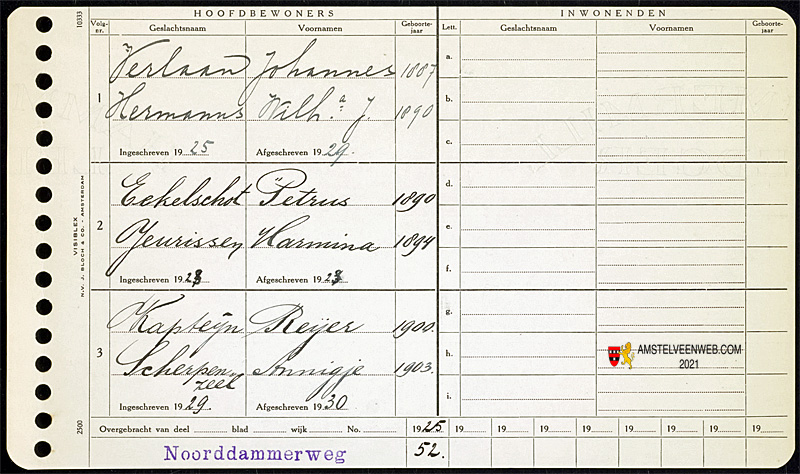 10333
HOOFDBEWONERS
INWONENDEN
Volg-nr. Geslachtsnaam Voornamen Geboorte-jaar Lett. Geslachtsnaam Voornamen Geboorte-jaar
1
Verlaan Johannes 1887
Hermanns Wilh.a J. 1890
Ingeschreven 1925 Afgeschreven 1929.
2
Eckelschot Petrus 1890
Jeurissen Harmina 1894
Ingeschreven 192 Afgeschreven 192
3
Kapteijn Reijer 1900.
Scherpen-zeel Annigje 1903.
Ingeschreven 1929. Afgeschreven 1930
a.
b.
c.
d.
e.
f.
g.
h.
i.
AMSTELVEENWEB.COM
2021
VISIBLEX
N.V. J. BLOCH & CO. - AMSTERDAM
2500
Overgebracht van deel blad wijk No. 1925 19 19 19 19 19 19 19 19
Noorddammerweg 52.